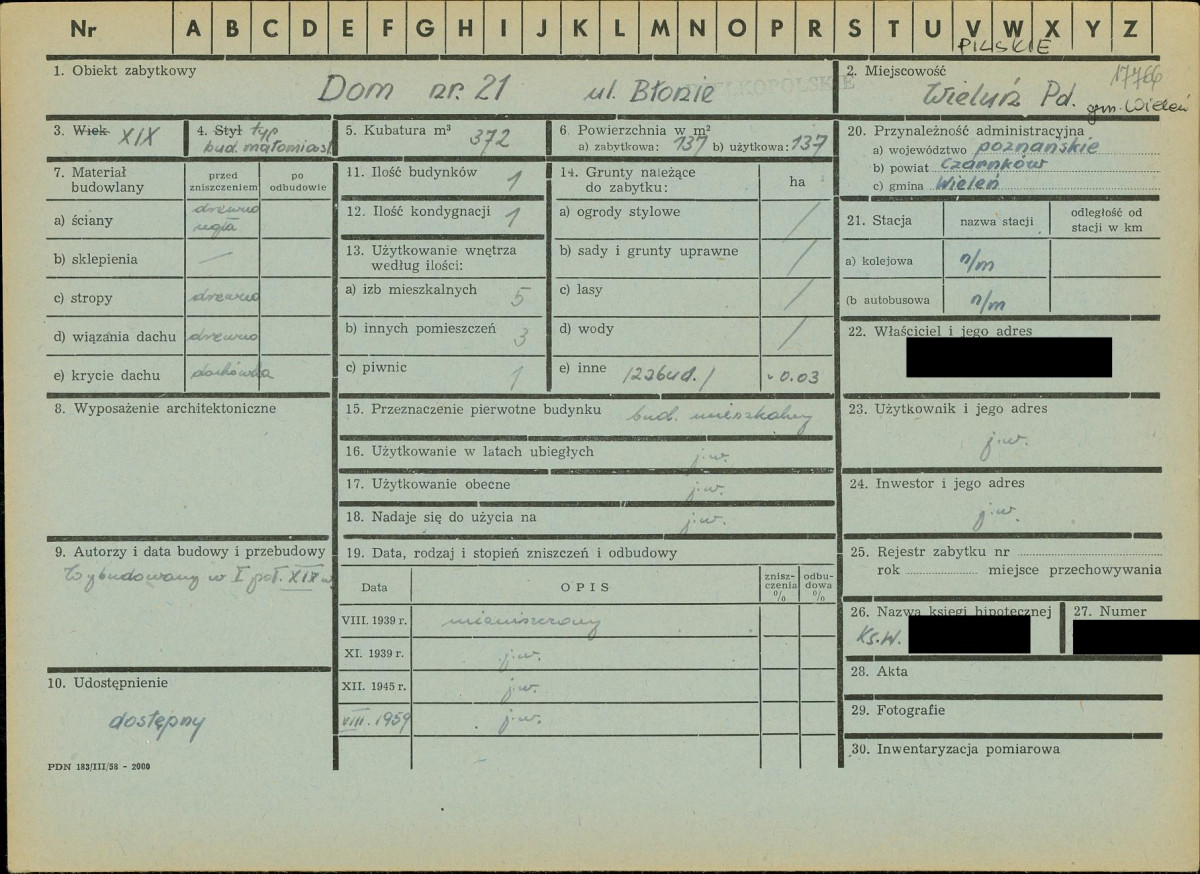 Nr A B C D E F G H I J K L M N O P R S T U V W X Y Z
PILSKIE
1. Obiekt zabytkowy
Dom nr. 21 ul. Błonie
WIELKOPOLSKIE
2. Miejscowość 17766
Wieluń Pd. gm. Wieleń
3. Wiek XIX
4. Styl typ
bud. małomiast.
5. Kubatura m³ 372
6. Powierzchnia w m²
a) zabytkowa: 137 b) użytkowa: 137
7. Materiał budowlany
przed zniszczeniem
po odbudowie
a) ściany drewno
cegła
b) sklepienia —
c) stropy drewno
d) wiązania dachu drewno
e) krycie dachu dachówka
8. Wyposażenie architektoniczne
9. Autorzy i data budowy i przebudowy
Wybudowany w I poł. XIX w.
10. Udostępnienie
dostępny
PDN 183/III/58 - 2000
11. Ilość budynków 1
12. Ilość kondygnacji 1
13. Użytkowanie wnętrza
według ilości:
a) izb mieszkalnych 5
b) innych pomieszczeń 3
c) piwnic 1
14. Grunty należące
do zabytku:
ha
a) ogrody stylowe /
b) sady i grunty uprawne /
c) lasy /
d) wody /
e) inne /zabud./ 0.03
15. Przeznaczenie pierwotne budynku bud. mieszkalny
16. Użytkowanie w latach ubiegłych j.w.
17. Użytkowanie obecne j.w.
18. Nadaje się do użycia na j.w.
19. Data, rodzaj i stopień zniszczeń i odbudowy
Data
OPIS
znisz-
czenia
%
odbu-
dowa
%
VIII. 1939 r. niezniszczony
XI. 1939 r. j.w.
XII. 1945 r. j.w.
VIII. 1959 j.w.
20. Przynależność administracyjna
a) województwo poznańskie
b) powiat Czarnków
c) gmina Wieleń
21. Stacja
nazwa stacji
odległość od
stacji w km
a) kolejowa n/m
(b autobusowa n/m
22. Właściciel i jego adres
23. Użytkownik i jego adres
j.w.
24. Inwestor i jego adres
j.w.
25. Rejestr zabytku nr
rok miejsce przechowywania
26. Nazwa księgi hipotecznej
Ks.W.
27. Numer
28. Akta
29. Fotografie
30. Inwentaryzacja pomiarowa